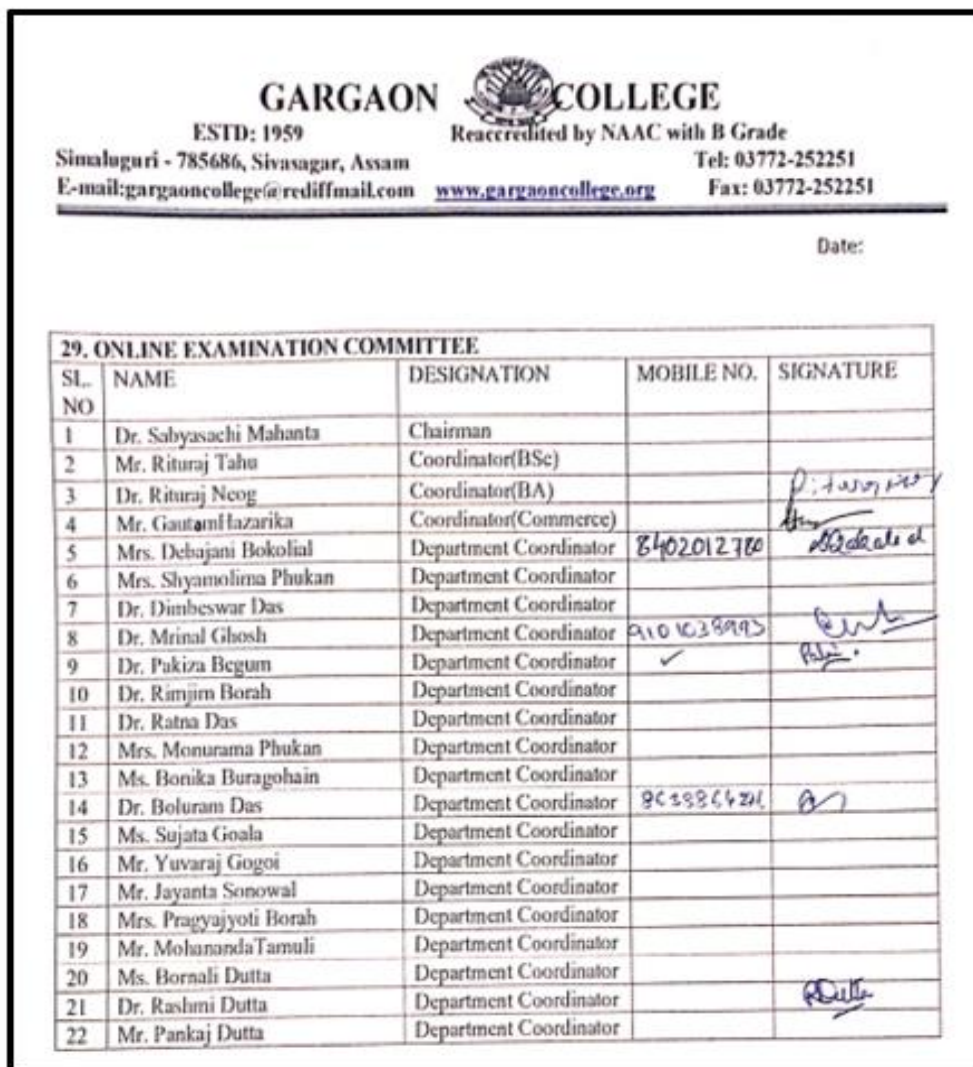 GARGAON COLLEGE
ESTD: 1959 Reaccredited by NAAC with B Grade
Simaluguri - 785686, Sivasagar, Assam Tel: 03772-252251
E-mail:gargaoncollege@rediffmail.com www.gargaoncollege.org Fax: 03772-252251
Date:
29. ONLINE EXAMINATION COMMITTEE
SL. NAME DESIGNATION MOBILE NO. SIGNATURE
NO
1 Dr. Sabyasachi Mahanta Chairman
2 Mr. Rituraj Tahu Coordinator(BSc)
3 Dr. Rituraj Neog Coordinator(BA)
4 Mr. GautamHazarika Coordinator(Commerce)
5 Mrs. Debajani Bokolial Department Coordinator 8402012780
6 Mrs. Shyamolima Phukan Department Coordinator
7 Dr. Dimbeswar Das Department Coordinator
8 Dr. Mrinal Ghosh Department Coordinator
9 Dr. Pakiza Begum Department Coordinator ✓
10 Dr. Rimjim Borah Department Coordinator
11 Dr. Ratna Das Department Coordinator
12 Mrs. Monurama Phukan Department Coordinator
13 Ms. Bonika Buragohain Department Coordinator
14 Dr. Boluram Das Department Coordinator
15 Ms. Sujata Goala Department Coordinator
16 Mr. Yuvaraj Gogoi Department Coordinator
17 Mr. Jayanta Sonowal Department Coordinator
18 Mrs. Pragyajyoti Borah Department Coordinator
19 Mr. MohanandaTamuli Department Coordinator
20 Ms. Bornali Dutta Department Coordinator
21 Dr. Rashmi Dutta Department Coordinator RDutta
22 Mr. Pankaj Dutta Department Coordinator